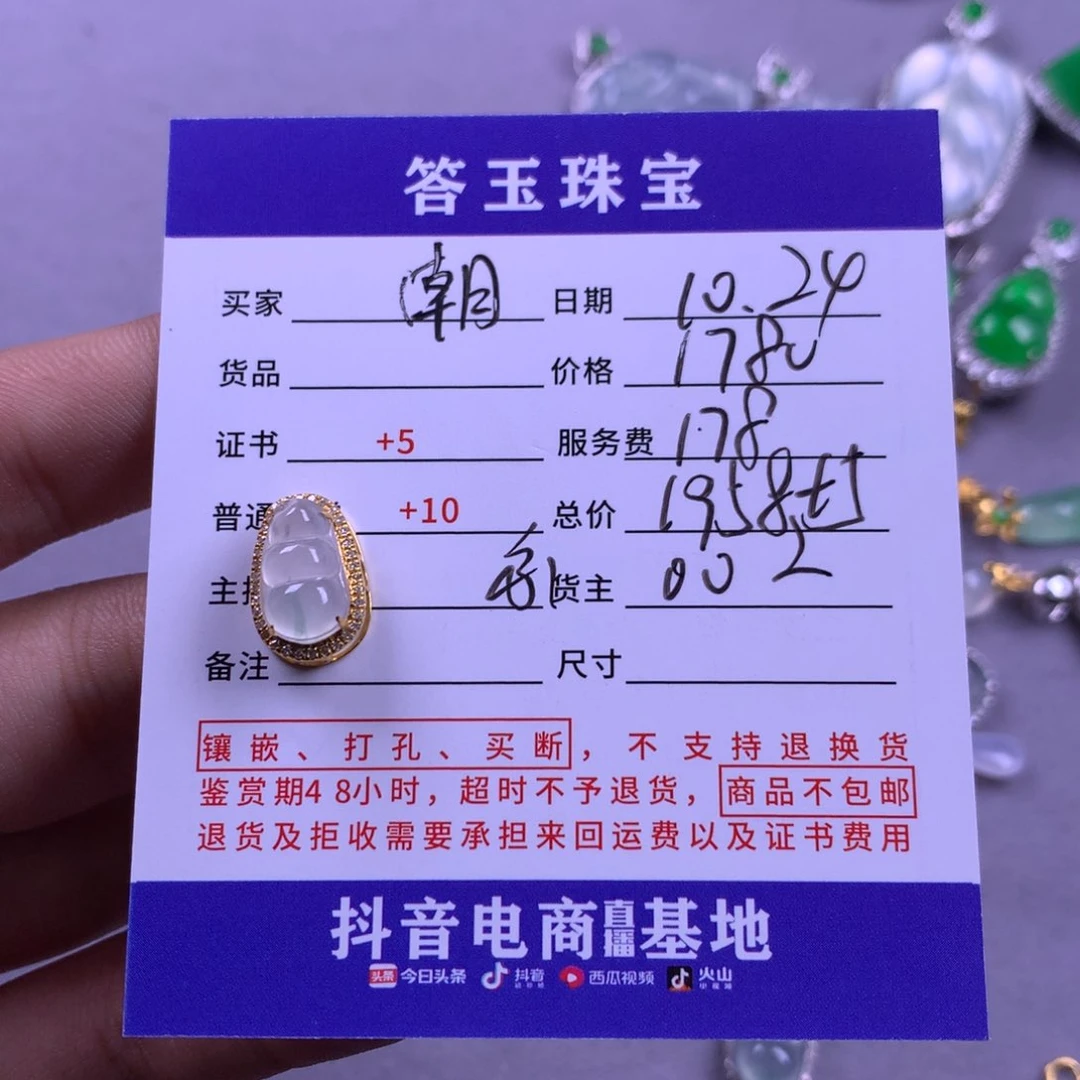 答玉珠宝
买家 潮 日期 10.24
货品 价格 1780
证书 +5 服务费 178
普通 +10 总价 1958
主 货主 00 2
备注 尺寸
镶嵌、打孔、买断，不支持退换货
鉴赏期48小时，超时不予退货，商品不包邮
退货及拒收需要承担来回运费以及证书费用
抖音电商直播基地
头条 今日头条 抖音 西瓜视频 火山